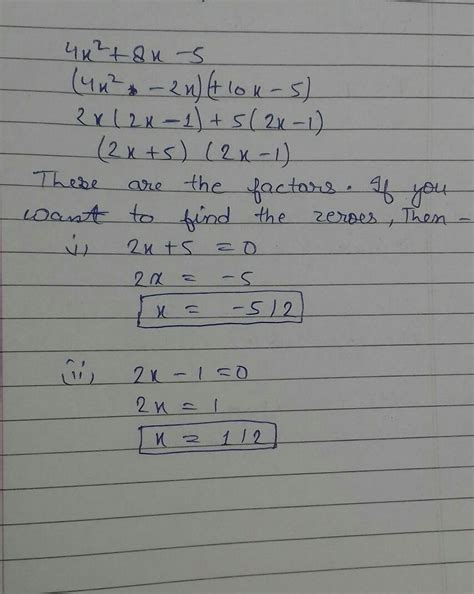 4x² + 8x - 5
(4x² - 2x)(+10x - 5)
2x(2x - 1) + 5(2x - 1)
(2x + 5) (2x - 1)
These are the factors. If you
want to find the zeroes, Then -
i) 2x + 5 = 0
2x = -5
x = -5/2
(ii) 2x - 1 = 0
2x = 1
x = 1/2